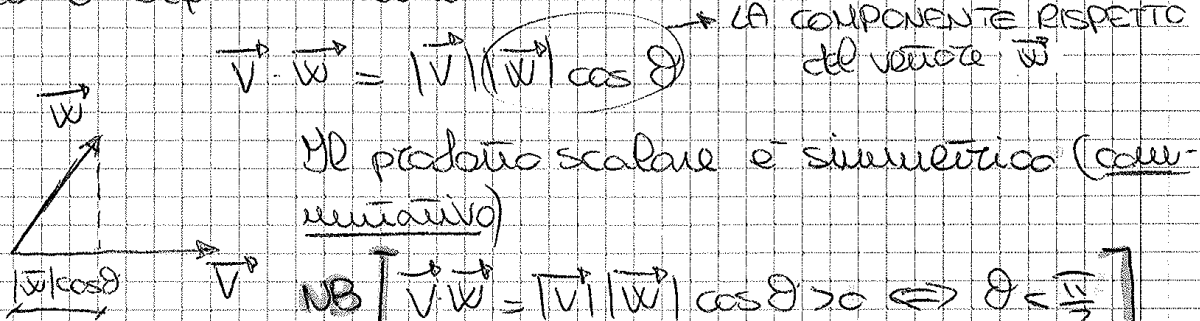 → LA COMPONENTE RISPETTO
del vettore w⃗
v⃗ · w⃗ = |v⃗| |w⃗| cos ϑ
w⃗
Il prodotto scalare è simmetrico (com-
mutativo)
|w⃗| cosϑ
v⃗
NB [v⃗·w⃗ = |v⃗| |w⃗| cos ϑ > 0 ⟺ ϑ < π/2]